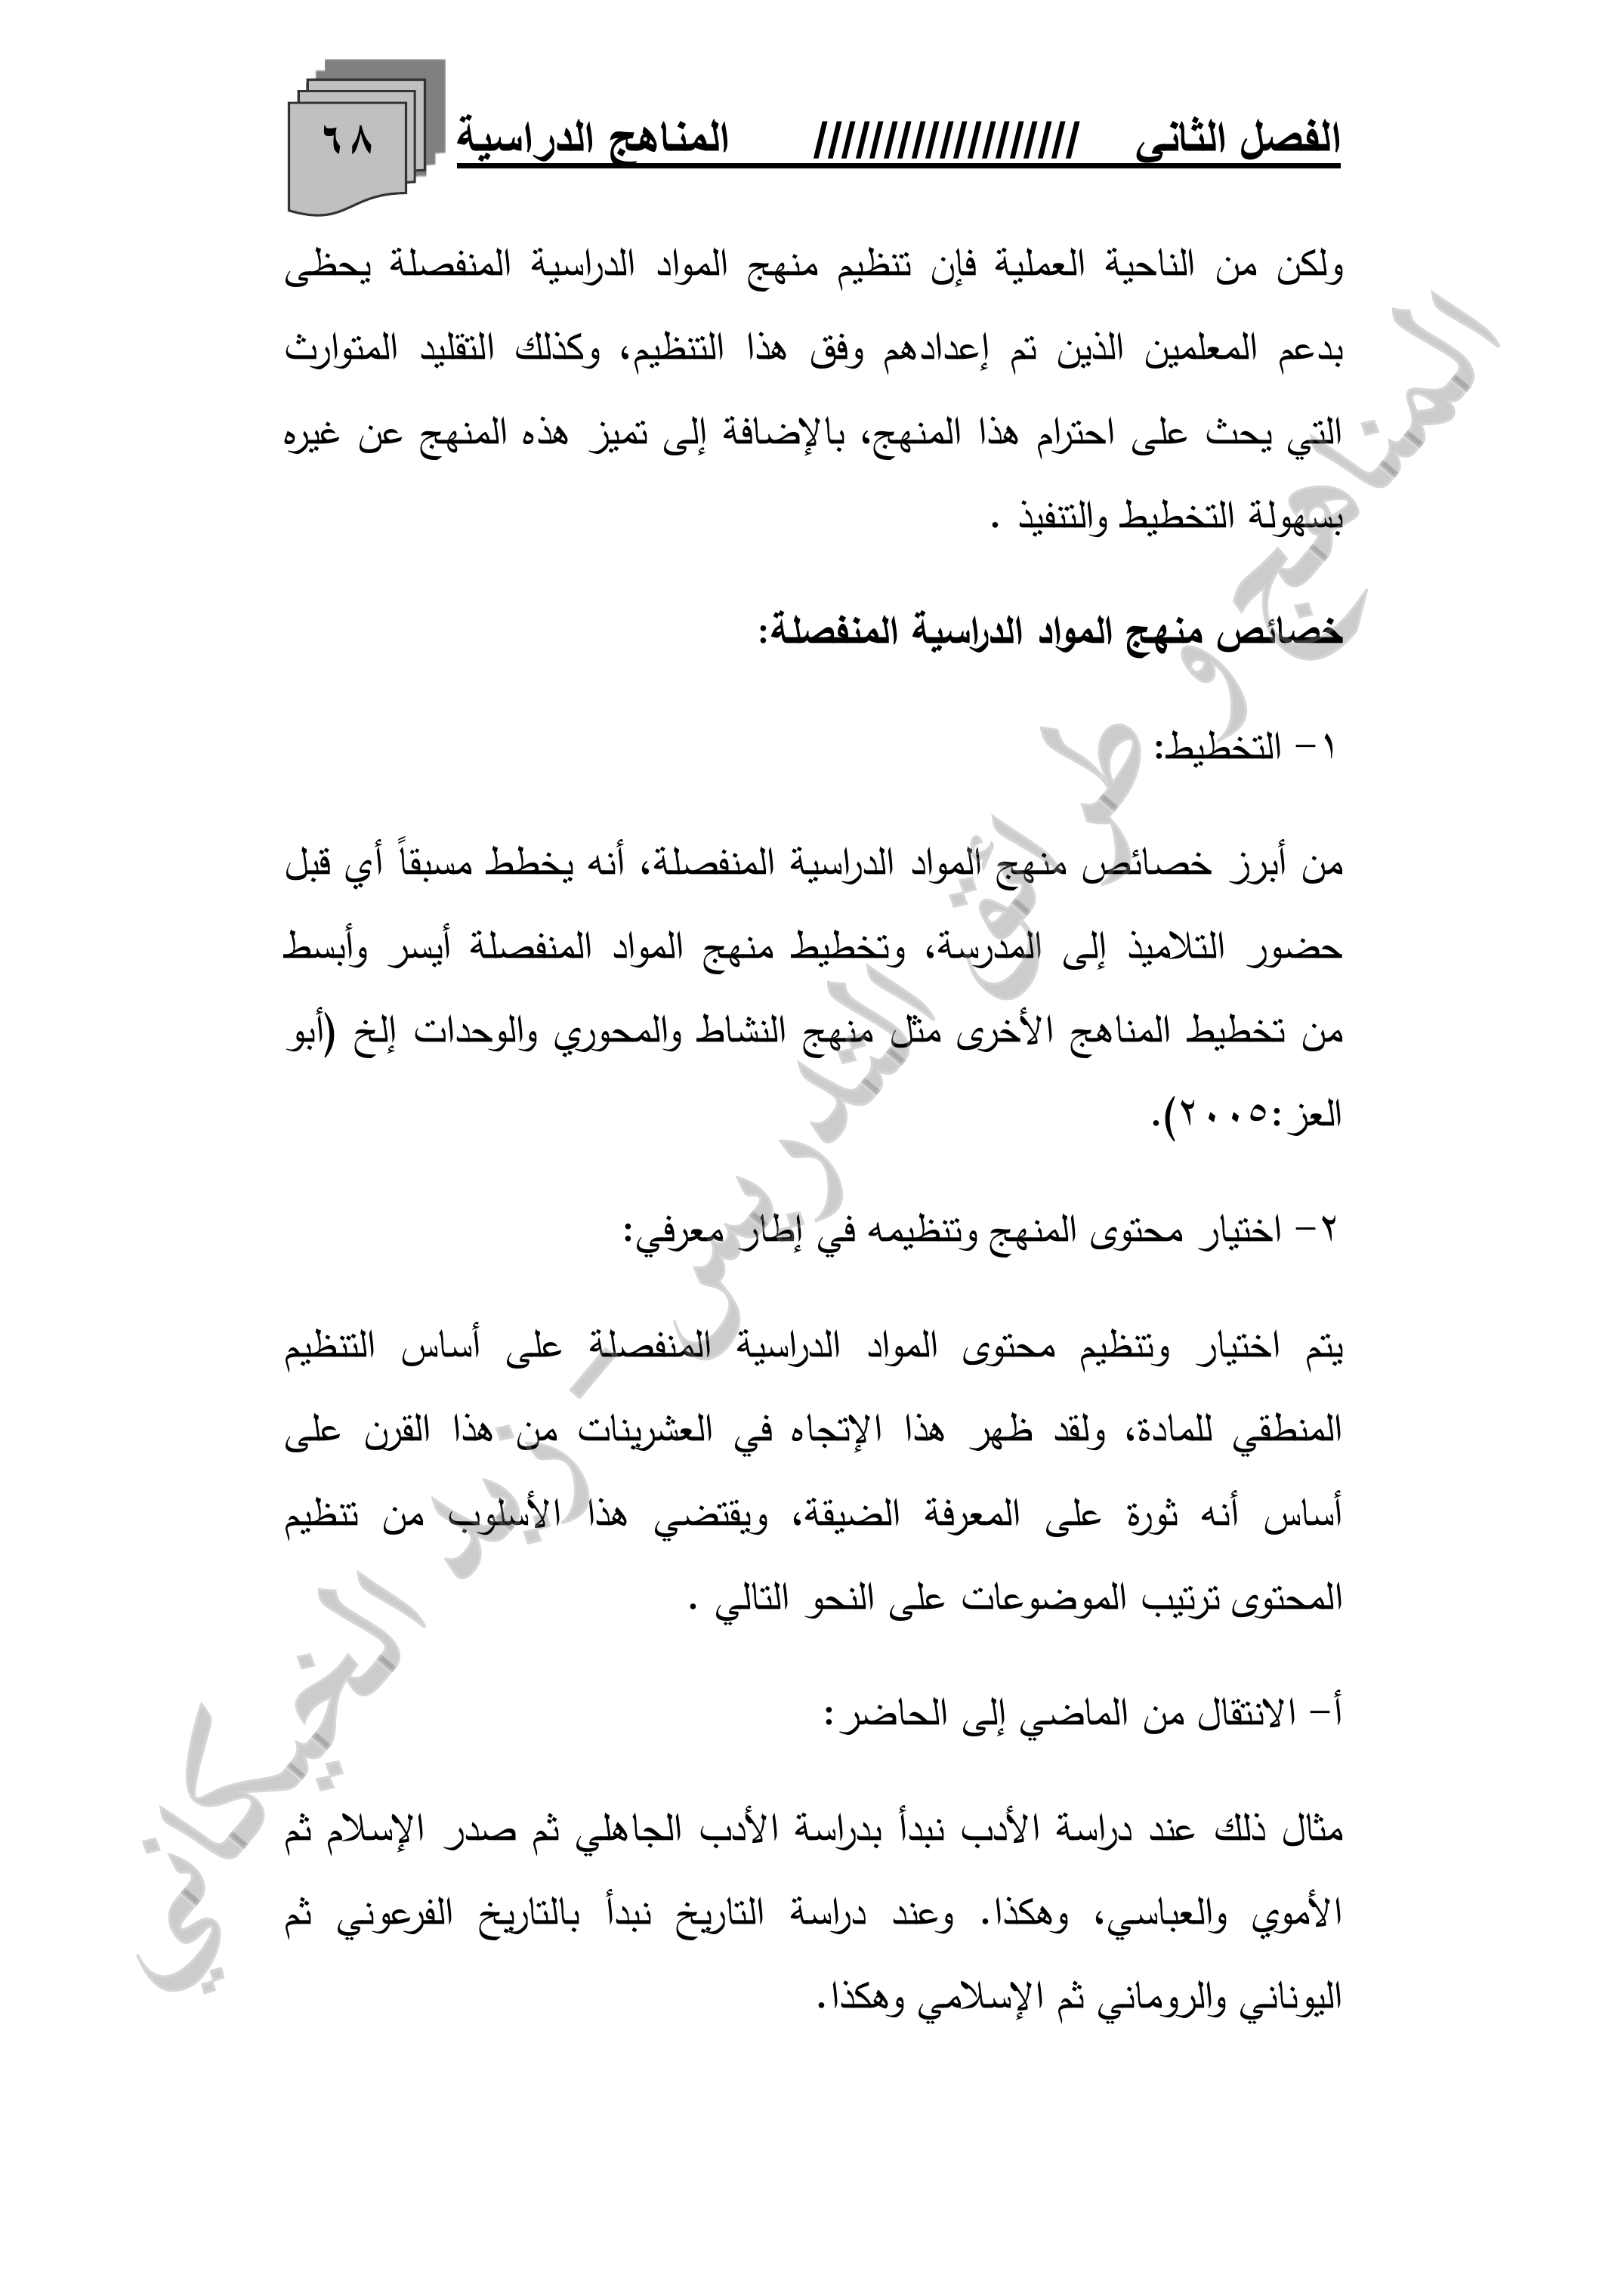 الفصل الثاني /////////////////// المناهج الدراسية ٦٨
ولكن من الناحية العملية فإن تنظيم منهج المواد الدراسية المنفصلة يحظى
بدعم المعلمين الذين تم إعدادهم وفق هذا التنظيم، وكذلك التقليد المتوارث
التي يحث على احترام هذا المنهج، بالإضافة إلى تميز هذه المنهج عن غيره
بسهولة التخطيط والتنفيذ .
خصائص منهج المواد الدراسية المنفصلة:
١- التخطيط:
من أبرز خصائص منهج المواد الدراسية المنفصلة، أنه يخطط مسبقاً أي قبل
حضور التلاميذ إلى المدرسة، وتخطيط منهج المواد المنفصلة أيسر وأبسط
من تخطيط المناهج الأخرى مثل منهج النشاط والمحوري والوحدات إلخ (أبو
العز:٢٠٠٥).
٢- اختيار محتوى المنهج وتنظيمه في إطار معرفي:
يتم اختيار وتنظيم محتوى المواد الدراسية المنفصلة على أساس التنظيم
المنطقي للمادة، ولقد ظهر هذا الإتجاه في العشرينات من هذا القرن على
أساس أنه ثورة على المعرفة الضيقة، ويقتضي هذا الأسلوب من تنظيم
المحتوى ترتيب الموضوعات على النحو التالي .
أ- الانتقال من الماضي إلى الحاضر:
مثال ذلك عند دراسة الأدب نبدأ بدراسة الأدب الجاهلي ثم صدر الإسلام ثم
الأموي والعباسي، وهكذا. وعند دراسة التاريخ نبدأ بالتاريخ الفرعوني ثم
اليوناني والروماني ثم الإسلامي وهكذا.
المناهج و طرائق التدريس - زيد الخيكاني